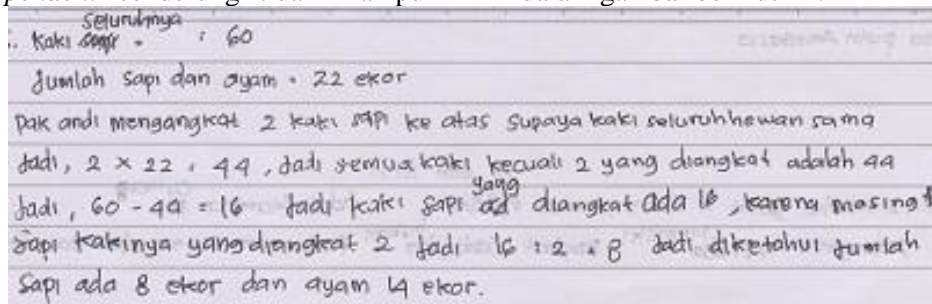 seluruhnya
Kaki : 60
Jumlah sapi dan ayam = 22 ekor
Pak andi mengangkat 2 kaki sapi ke atas supaya kaki seluruh hewan sama
Jadi, 2 x 22 = 44, Jadi semua kaki kecuali 2 yang diangkat adalah 44
Jadi, 60 - 44 = 16 Jadi kaki sapi yang diangkat ada 16, karena masing
Sapi kakinya yang diangkat 2 Jadi 16 : 2 = 8 Jadi diketahui Jumlah
Sapi ada 8 ekor dan ayam 14 ekor.